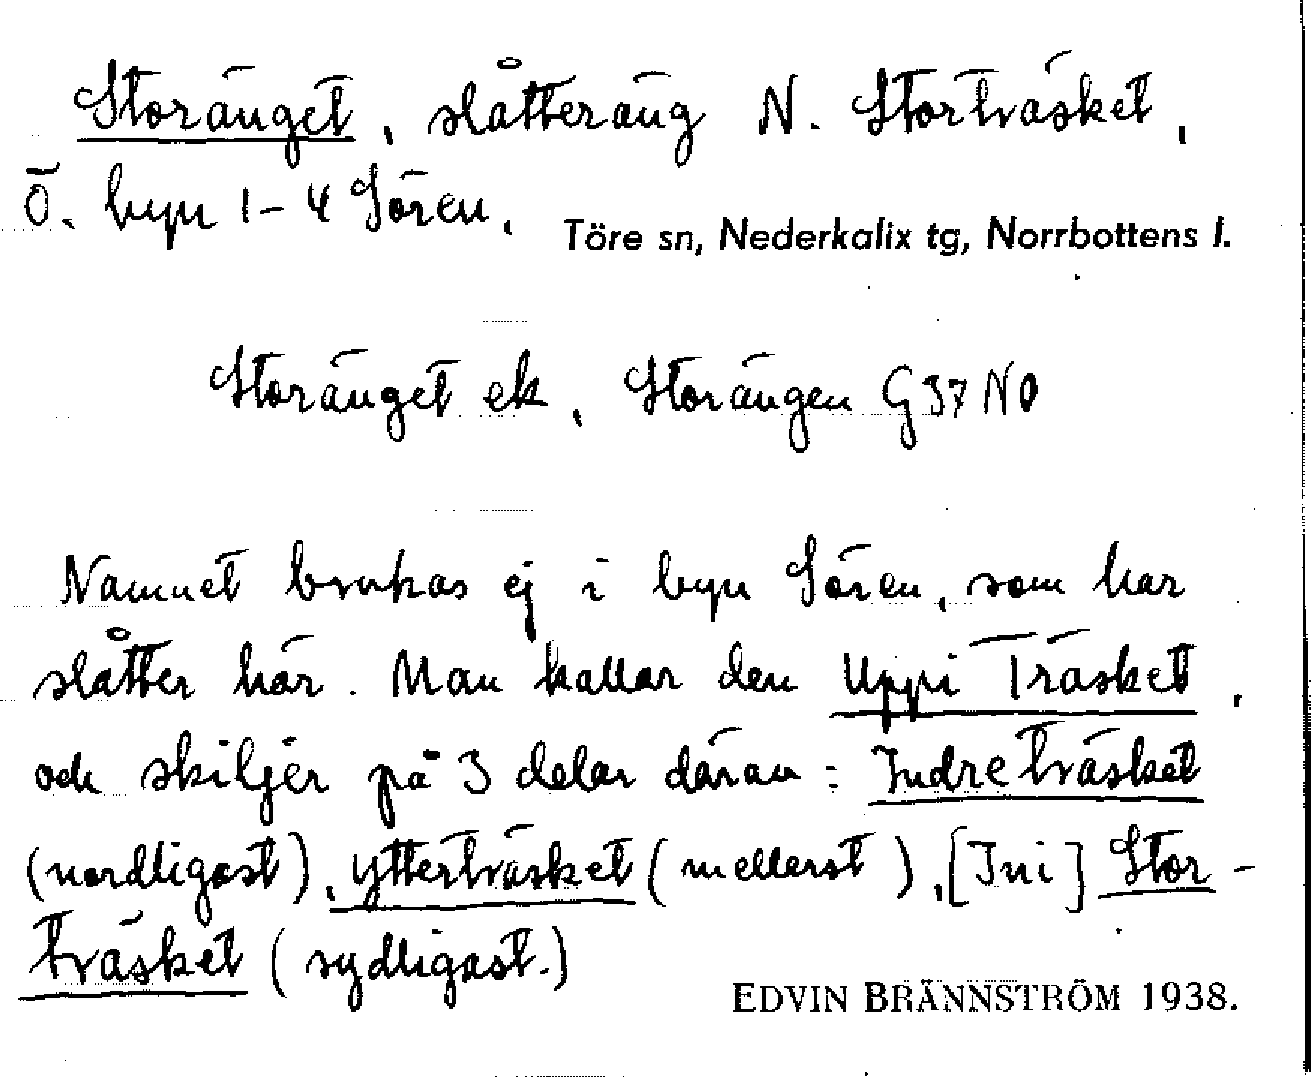 Storänget, slåtteräng N. Storträsket,
Ö. byn 1-4 Sören.
Töre sn, Nederkalix tg, Norrbottens l.
Storänget ek, Storängen G37 NO
Namnet brukas ej i byn Sören, som har
slåtter här. Man kallar den Uppi Träsket,
och skiljer på 3 delar därav: Indreträsket
(nordligast), Ytterträsket (mellerst), [Ini] Stor-
träsket (sydligast.)
EDVIN BRÄNNSTRÖM 1938.